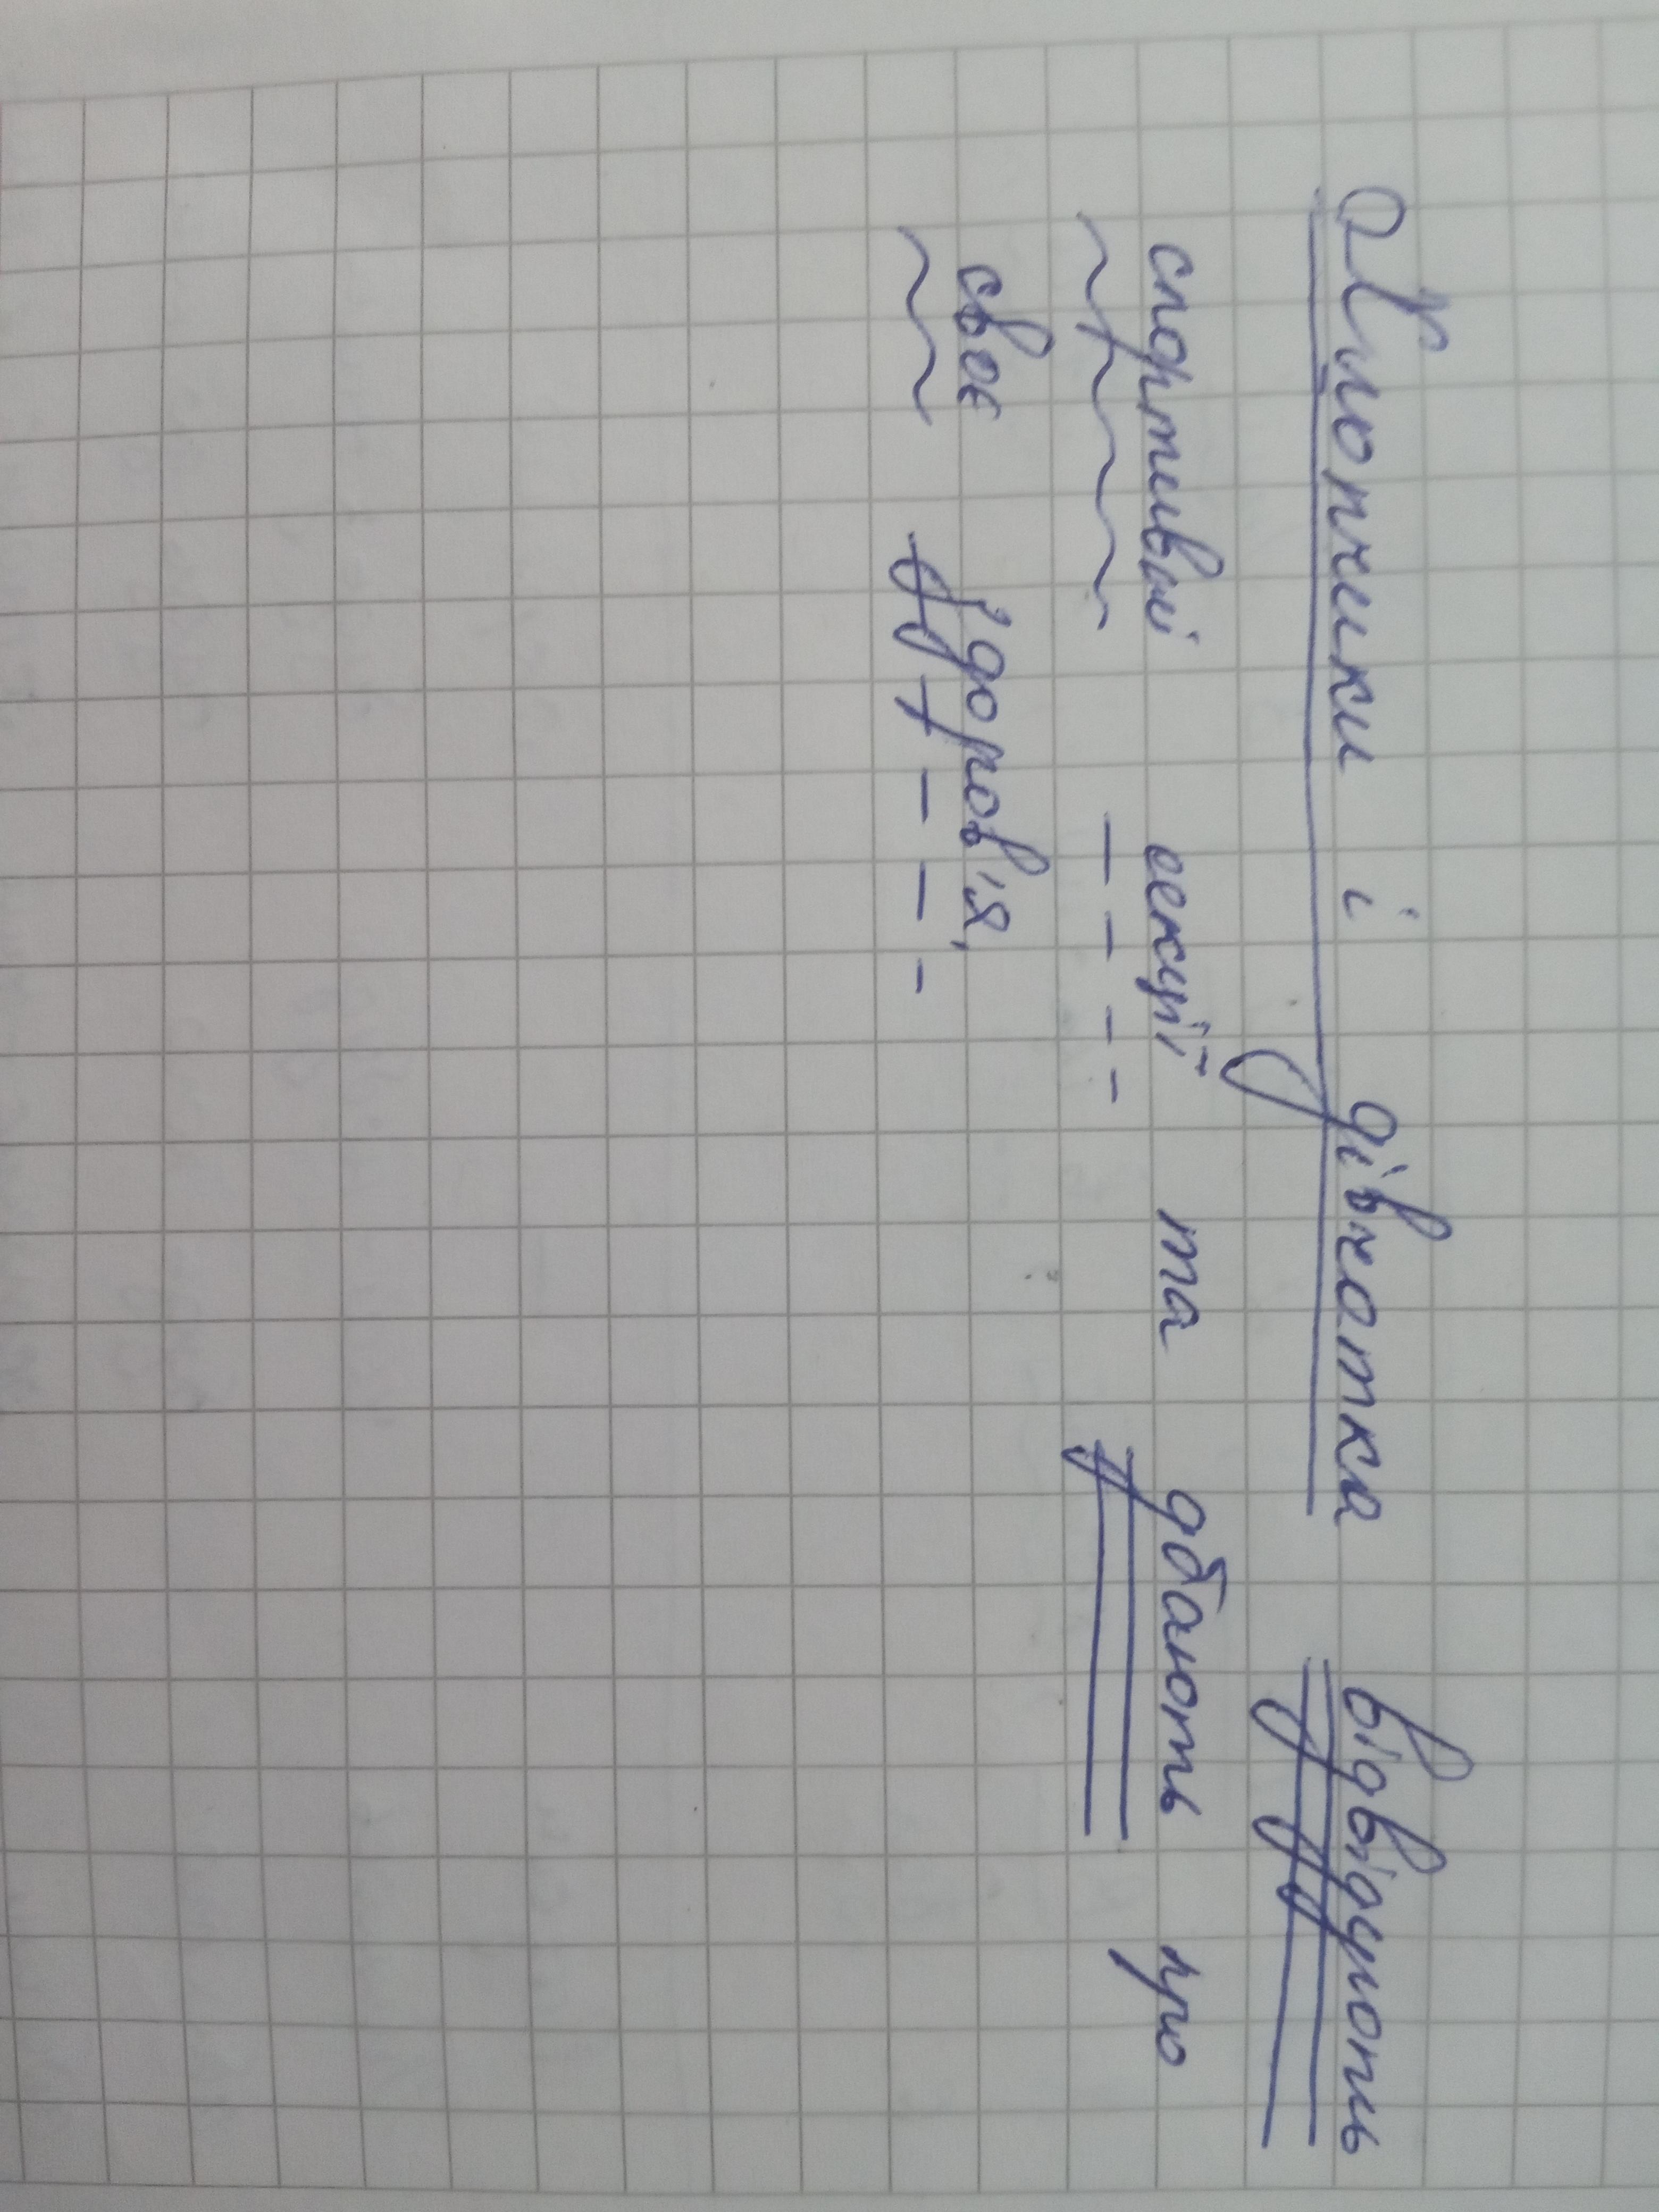 Хлопчики і дівчатка відвідують
спортивні секції та дбають про
своє здоров'я,